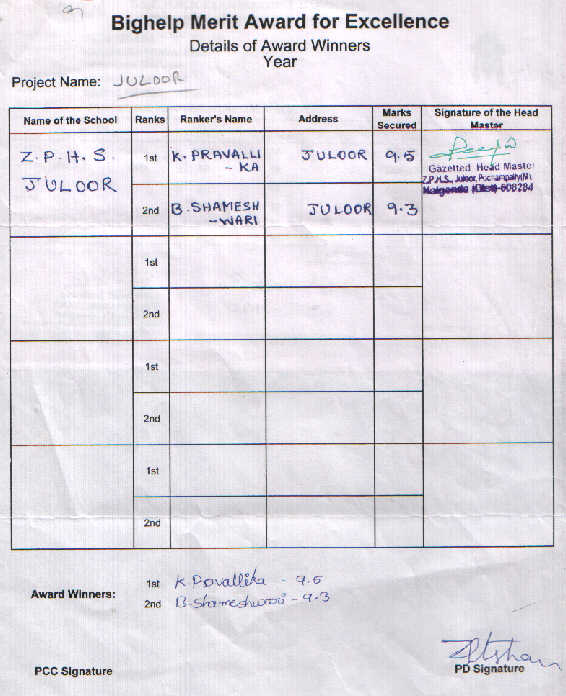 Bighelp Merit Award for Excellence
Details of Award Winners
Year
Project Name: JULOOR
Name of the School Ranks Ranker's Name Address Marks Secured Signature of the Head Master
Z.P.H.S. JULOOR 1st K. PRAVALLI-KA JULOOR 9.5
Gazetted Head Master
Z.P.H.S., Juloor, Pochampally(M)
Nalgonda (Dist)-508284
2nd B. SHAMESH-WARI JULOOR 9.3
1st
2nd
1st
2nd
1st
2nd
Award Winners:
1st K. Pravallika - 9.5
2nd B. Shameshwari - 9.3
PCC Signature
PD Signature